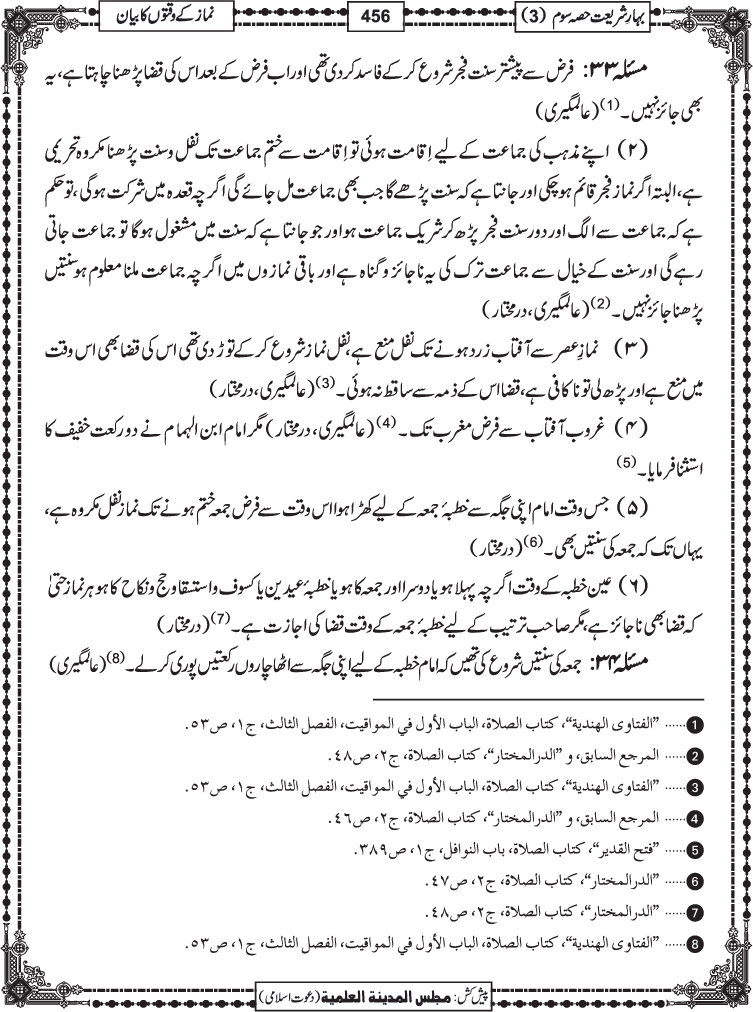 بہارِ شریعت حصہ سوم (3)
456
نماز کے وقتوں کا بیان
مسئلہ ۳۳: فرض سے پیشتر سنت فجر شروع کر کے فاسد کر دی تھی اور اب فرض کے بعد اس کی قضا پڑھنا چاہتا ہے، یہ
بھی جائز نہیں۔(1) (عالمگیری)
(۲) اپنے مذہب کی جماعت کے لیے اِقامت ہوئی تو اِقامت سے ختم جماعت تک نفل و سنت پڑھنا مکروہ تحریمی
ہے، البتہ اگر نماز فجر قائم ہو چکی اور جانتا ہے کہ سنت پڑھے گا جب بھی جماعت مل جائے گی اگرچہ قعدہ میں شرکت ہوگی، تو حکم
ہے کہ جماعت سے الگ اور دور سنت فجر پڑھ کر شریک جماعت ہو اور جو جانتا ہے کہ سنت میں مشغول ہوگا تو جماعت جاتی
رہے گی اور سنت کے خیال سے جماعت ترک کی یہ ناجائز و گناہ ہے اور باقی نمازوں میں اگرچہ جماعت ملنا معلوم ہو سنتیں
پڑھنا جائز نہیں۔(2) (عالمگیری، درمختار)
(۳) نمازِ عصر سے آفتاب زرد ہونے تک نفل منع ہے، نفل نماز شروع کر کے توڑ دی تھی اس کی قضا بھی اس وقت
میں منع ہے اور پڑھ لی تو ناکافی ہے، قضا اس کے ذمہ سے ساقط نہ ہوئی۔(3) (عالمگیری، درمختار)
(۴) غروب آفتاب سے فرض مغرب تک۔(4) (عالمگیری، درمختار) مگر امام ابن الہمام نے دو رکعت خفیف کا
استثنا فرمایا۔(5)
(۵) جس وقت امام اپنی جگہ سے خطبۂ جمعہ کے لیے کھڑا ہوا اس وقت سے فرض جمعہ ختم ہونے تک نماز نفل مکروہ ہے،
یہاں تک کہ جمعہ کی سنتیں بھی۔(6) (درمختار)
(۶) عین خطبہ کے وقت اگرچہ پہلا ہو یا دوسرا اور جمعہ کا ہو یا خطبۂ عیدین یا کسوف و استسقا و حج و نکاح کا ہو ہر نماز حتیٰ
کہ قضا بھی ناجائز ہے، مگر صاحب ترتیب کے لیے خطبۂ جمعہ کے وقت قضا کی اجازت ہے۔(7) (درمختار)
مسئلہ ۳۴: جمعہ کی سنتیں شروع کی تھیں کہ امام خطبہ کے لیے اپنی جگہ سے اٹھا چاروں رکعتیں پوری کرلے۔(8) (عالمگیری)
1 ...... "الفتاوى الهندية"، كتاب الصلاة، الباب الأول في المواقيت، الفصل الثالث، ج١، ص٥٣.
2 ...... المرجع السابق، و "الدرالمختار"، كتاب الصلاة، ج٢، ص٤٨.
3 ...... "الفتاوى الهندية"، كتاب الصلاة، الباب الأول في المواقيت، الفصل الثالث، ج١، ص٥٣.
4 ...... المرجع السابق، و "الدرالمختار"، كتاب الصلاة، ج٢، ص٤٦.
5 ...... "فتح القدير"، كتاب الصلاة، باب النوافل، ج١، ص٣٨٩.
6 ...... "الدرالمختار"، كتاب الصلاة، ج٢، ص٤٧.
7 ...... "الدرالمختار"، كتاب الصلاة، ج٢، ص٤٨.
8 ...... "الفتاوى الهندية"، كتاب الصلاة، الباب الأول في المواقيت، الفصل الثالث، ج١، ص٥٣.
پیش کش: مجلس المدینة العلمیة (دعوت اسلامی)